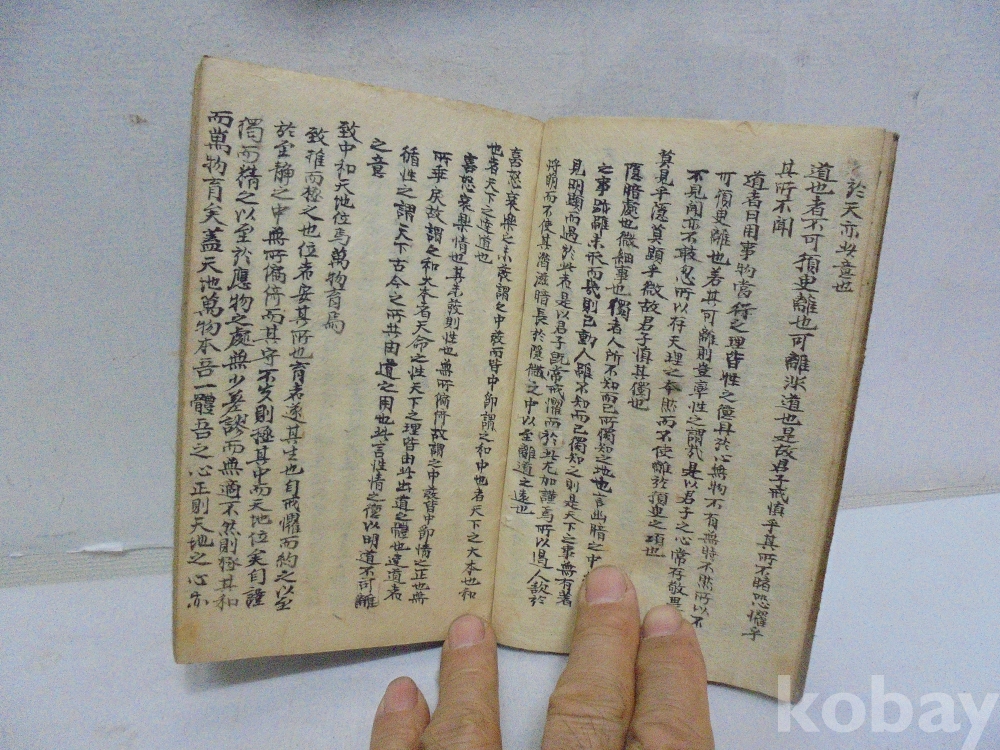 於天亦此意也
道也者不可須臾離也可離非道也是故君子戒愼乎其所不睹恐懼乎
其所不聞
道者日用事物當行之理皆性之德具於心無物不有無時不然所以不
可須臾離也若其可離則豈率性之謂哉是以君子之心常存敬畏
不見聞亦不敢忽所以存天理之本然而不使離於須臾之頃也
莫見乎隱莫顯乎微故君子愼其獨也
隱暗處也微細事也獨者人所不知而己所獨知之地也言幽暗之中
之事跡雖未形而幾則已動人雖不知而己獨知之則是天下之事無有著
見明顯而過於此者是以君子旣常戒懼而於此尤加謹焉所以遏人欲於
將萌而不使其潛滋暗長於隱微之中以至離道之遠也
喜怒哀樂之未發謂之中發而皆中節謂之和中也者天下之大本也和
也者天下之達道也
喜怒哀樂情也其未發則性也無所偏倚故謂之中發皆中節情之正也無
所乖戾故謂之和大本者天命之性天下之理皆由此出道之體也達道者
循性之謂天下古今之所共由道之用也此言性情之德以明道不可離
之意
致中和天地位焉萬物育焉
致推而極之也位者安其所也育者遂其生也自戒懼而約之以至
於至靜之中無所偏倚而其守不失則極其中而天地位矣自謹
獨而精之以至於應物之處無少差謬而無適不然則極其和
而萬物育矣蓋天地萬物本吾一體吾之心正則天地之心亦
kobay